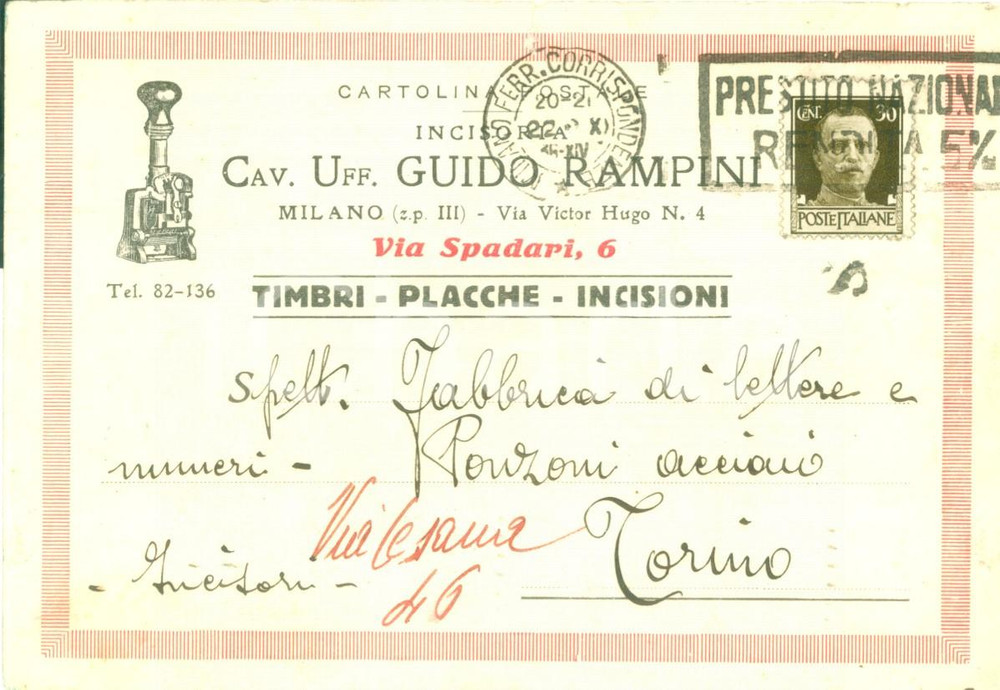 CARTOLINA POSTALE
INCISORIA
CAV. UFF. GUIDO RAMPINI
MILANO (z.p. III) - Via Victor Hugo N. 4
Via Spadari, 6
Tel. 82-136
TIMBRI - PLACCHE - INCISIONI
FERR. CORRISPONDE
20-21
XIV
PRESTITO NAZIONAL
RENDITA 5%
CENT. 30
POSTE ITALIANE
S
Spett. Fabbrica di lettere e
numeri - Ponzoni acciaio
Via Cesana
46
Torino
- Incisori -